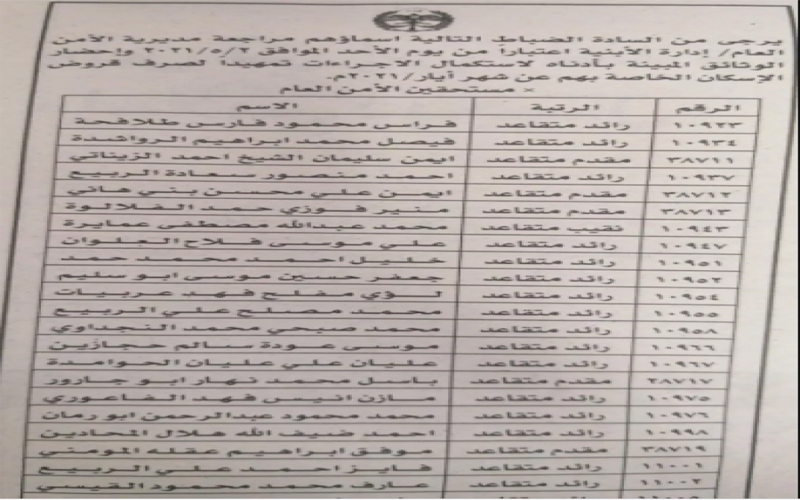 يرجى من السادة الضباط التالية اسماؤهم مراجعة مديرية الأمن
العام/ إدارة الأبنية اعتباراً من يوم الأحد الموافق ٢٠٢١/٥/٢ وإحضار
الوثائق المبينة بأدناه لاستكمال الاجراءات تمهيداً لصرف قروض
الإسكان الخاصة بهم عن شهر أيار/٢٠٢١م.
× مستحقين الأمن العام
الرقم الرتبة الاسم
١٠٩٢٣ رائد متقاعد فراس محمود فارس طلافحة
١٠٩٣٤ رائد متقاعد فيصل محمد ابراهيم الرواشدة
٣٨٧١١ مقدم متقاعد ايمن سليمان الشيخ احمد الزيناتي
١٠٩٣٧ رائد متقاعد احمد منصور سعادة الربيع
٣٨٧١٢ مقدم متقاعد ايمن علي محسن بني هاني
٣٨٧١٣ مقدم متقاعد منير فوزي حمد الفلالوة
١٠٩٤٣ نقيب متقاعد محمد عبدالله مصطفى عمايرة
١٠٩٤٧ رائد متقاعد علي موسى فلاح العلوان
١٠٩٥١ رائد متقاعد خليل احمد محمد حمد
١٠٩٥٢ رائد متقاعد جعفر حسين موسى ابو سليم
١٠٩٥٤ رائد متقاعد لؤي مفلح فهد عربيات
١٠٩٥٥ رائد متقاعد محمد مصلح علي الربيع
١٠٩٥٨ رائد متقاعد محمد صبحي محمد النجداوي
١٠٩٦٦ رائد متقاعد موسى عودة سالم حجازين
١٠٩٦٧ رائد متقاعد عليان علي عليان الحوامدة
٣٨٧١٧ مقدم متقاعد باسل محمد نهار ابو جارور
١٠٩٧٥ رائد متقاعد مازن انيس فهد الفاعوري
١٠٩٧٦ رائد متقاعد محمد محمود عبدالرحمن ابو رمان
١٠٩٩٨ رائد متقاعد احمد ضيف الله هلال المحادين
٣٨٧١٩ مقدم متقاعد موفق ابراهيم عقله المومني
١١٠٠١ رائد متقاعد فايز احمد علي الربيع
١١٠٠٢ رائد متقاعد عارف محمد محمود القيسي